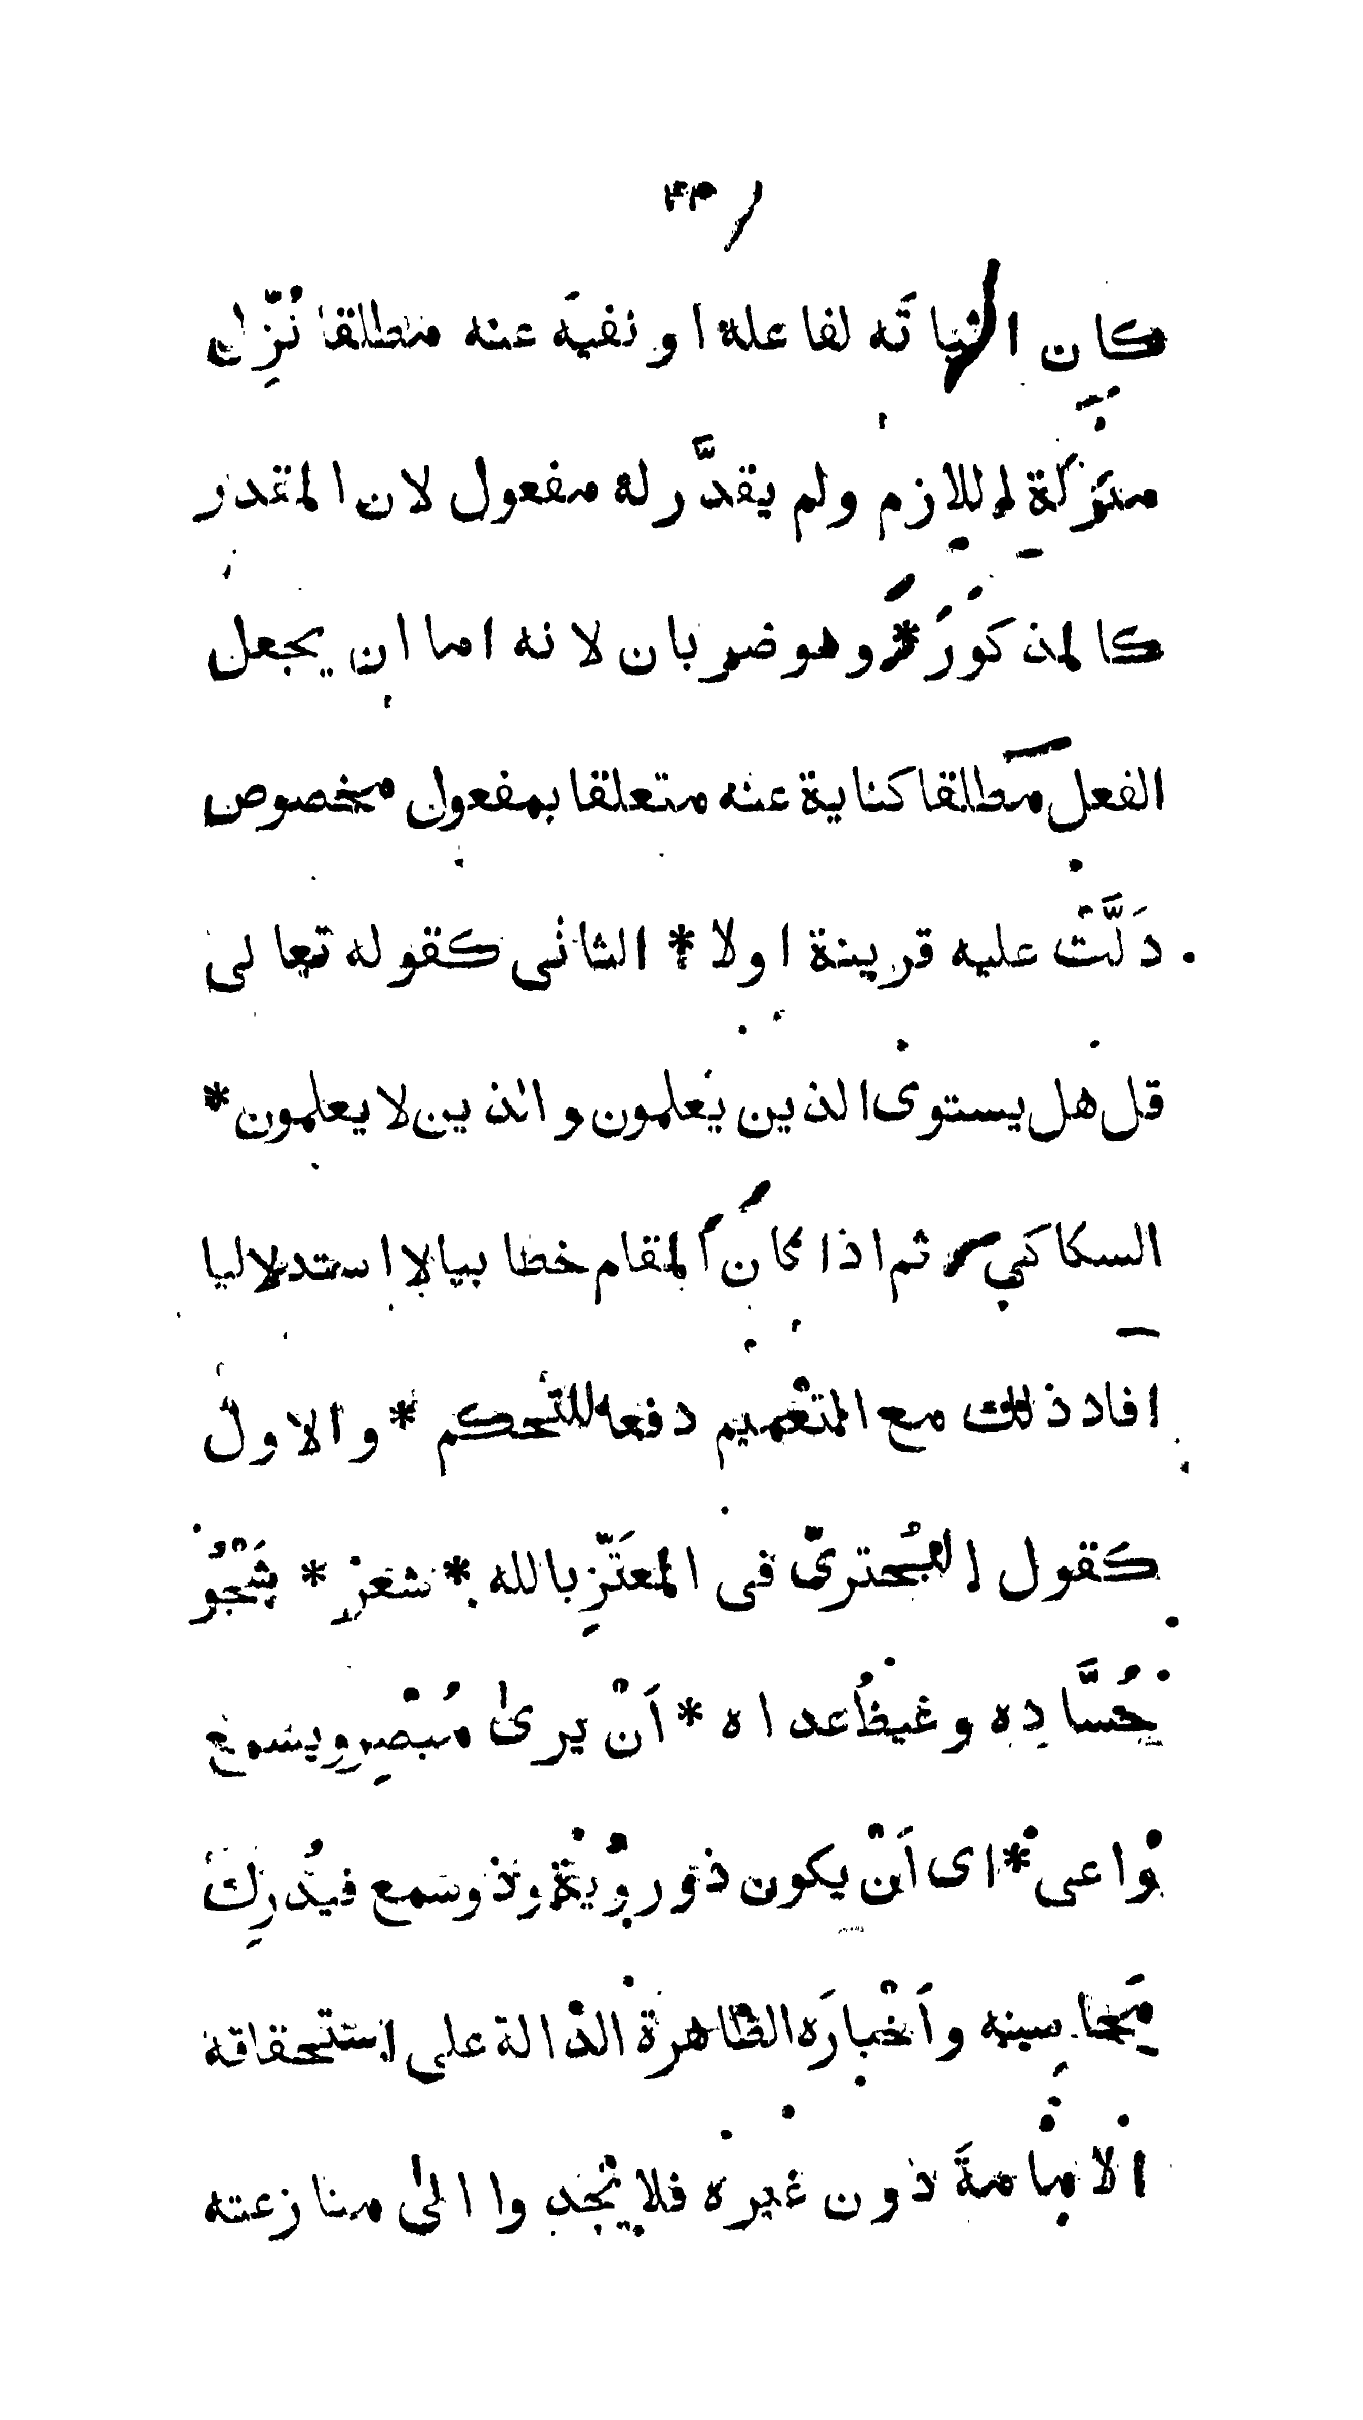 ۴۳
كان اثباته لفاعله او نفيه عنه مطلقا نُزِّل
منزلة اللازم ولم يقدَّر له مفعول لان المقدر
كالمذكور * وهو ضربان لانه اما ان يجعل
الفعل مطلقا كناية عنه متعلقا بمفعول مخصوص
دَلَّتْ عليه قرينة اولا * الثانى كقوله تعالى
قل هل يستوى الذين يعلمون والذين لا يعلمون *
السكاكي ثم اذا كان المقام خطابيا لا استدلاليا
افاد ذلك مع التعميم دفعا للتحكم * والاول
كقول البُحترىّ فى المعتَزِّ بالله * شعر * شَجْوُ
حُسَّاده وغيظُ عداه * اَنْ يرىٰ مُبْصِر ويسمع
واعى * اى اَنْ يكون ذو رؤية وذو سمع فيُدرِك
مَحاسِنه واَخْبارَه الظاهرة الدالة على استحقاقه
الامامةَ دون غيره فلا يجدوا الىٰ منازعته